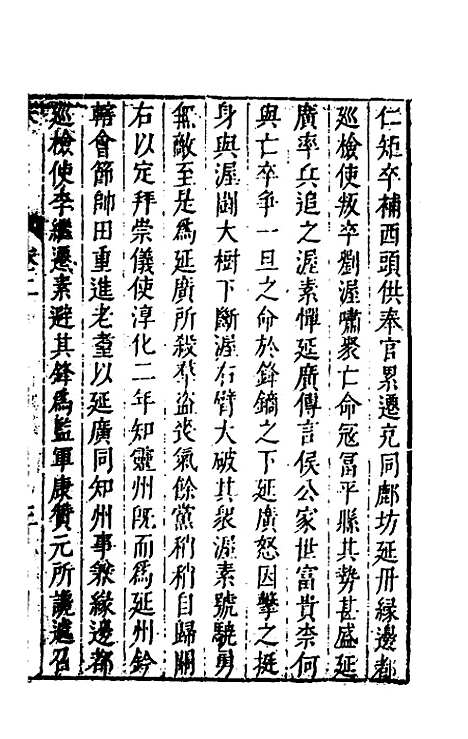 仁矩卒補西頭供奉官累遷充同鄜坊延丹緣邊都
巡檢使叛卒劉渥嘯聚亡命冦富平縣其勢甚盛延
廣率兵追之渥素憚延廣傳言侯公家世富貴柰何
與亡卒爭一旦之命於鋒鏑之下延廣怒因擊之挺
身與渥鬬大樹下斷渥右臂大破其衆渥素號驍勇
無敵至是爲延廣所殺羣盗丧氣餘黨稍稍自歸關
右以定拜崇儀使淳化二年知靈州旣而爲延州鈐
轄會節帥田重進老耄以延廣同知州事兼緣邊都
巡檢使李繼遷素避其鋒爲監軍康贊元所讒遽召
卷二